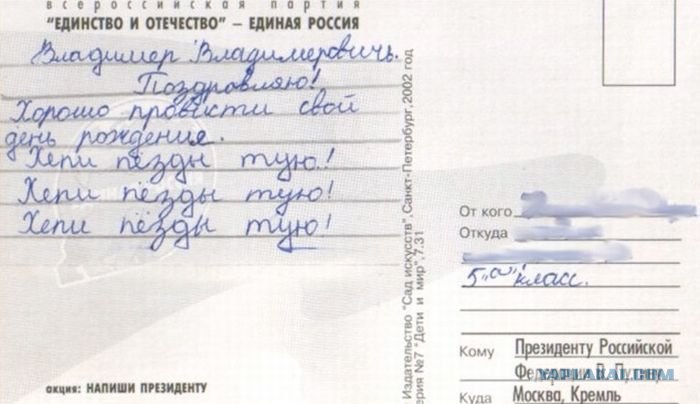 всероссийская партия
"ЕДИНСТВО И ОТЕЧЕСТВО" – ЕДИНАЯ РОССИЯ
Владимер Владимеровичь.
Поздравляю!
Хорошо провести свой
день рождения.
Хепи пёзды тую!
Хепи пёзды тую!
Хепи пёзды тую!
акция: НАПИШИ ПРЕЗИДЕНТУ
Издательство "Сад искусств", Санкт-Петербург, 2002 год
ерия №7 "Дети и мир", 7.31
От кого
Откуда
5 "а" класс.
Кому Президенту Российской
Федерации В. Путину
Куда Москва, Кремль
YAPLAKAL.COM